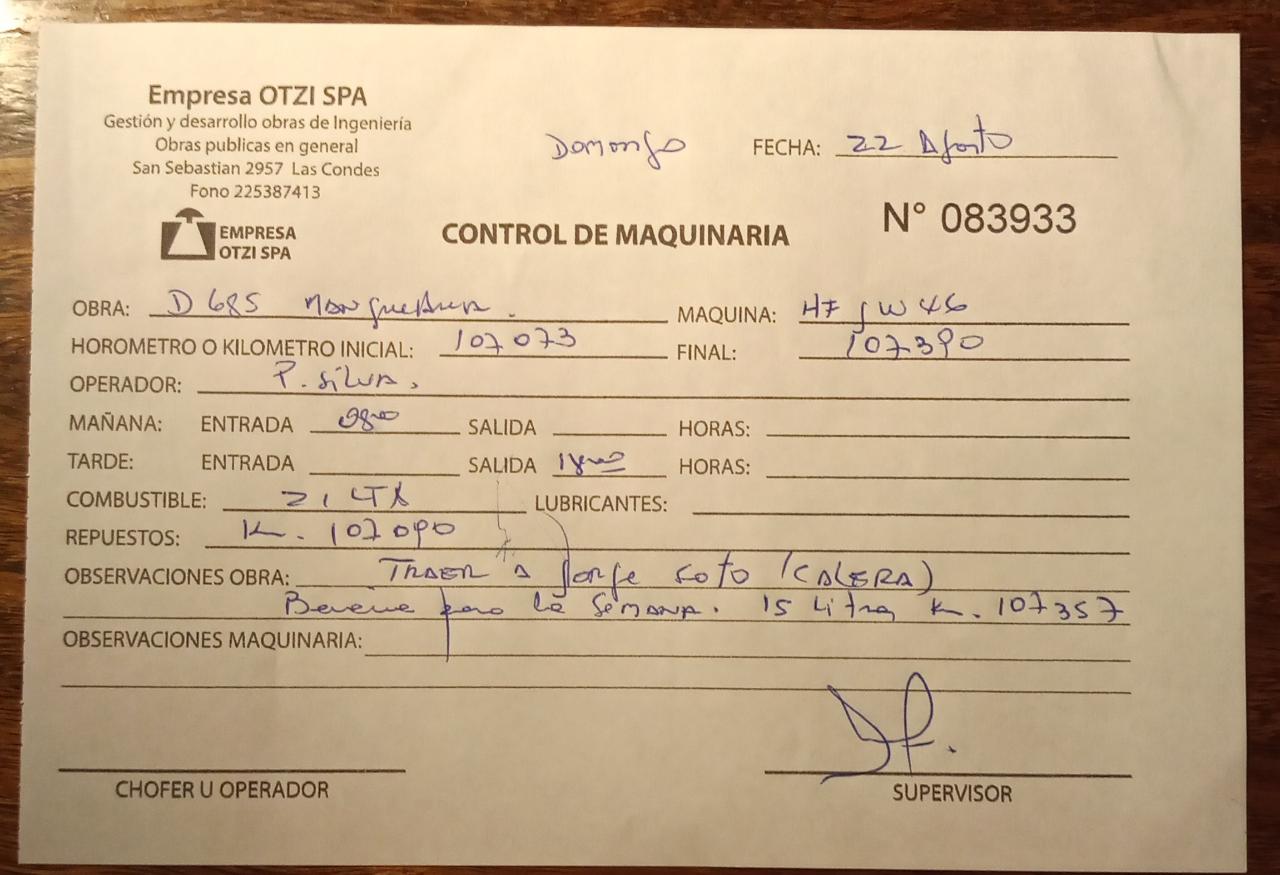 Empresa OTZI SPA
Gestión y desarrollo obras de Ingeniería
Obras publicas en general
San Sebastian 2957 Las Condes
Fono 225387413
EMPRESA
OTZI SPA
Domingo FECHA: 22 Agosto
CONTROL DE MAQUINARIA N° 083933
OBRA: D 685 MAQUINA: W 46
HOROMETRO O KILOMETRO INICIAL: 107073 FINAL: 107390
OPERADOR: P. Silva.
MAÑANA: ENTRADA 0800 SALIDA HORAS:
TARDE: ENTRADA SALIDA 1800 HORAS:
COMBUSTIBLE: 21 LTS LUBRICANTES:
REPUESTOS: K. 107090
OBSERVACIONES OBRA: TRAER A Jorge Soto (CALERA)
para la SEMANA. 15 Litros K. 107357
OBSERVACIONES MAQUINARIA:
CHOFER U OPERADOR
SUPERVISOR